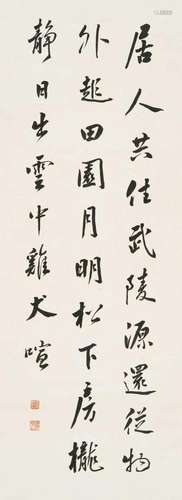 居人共住武陵源還從物
外起田園月明松下房櫳
静日出雲中雞犬喧